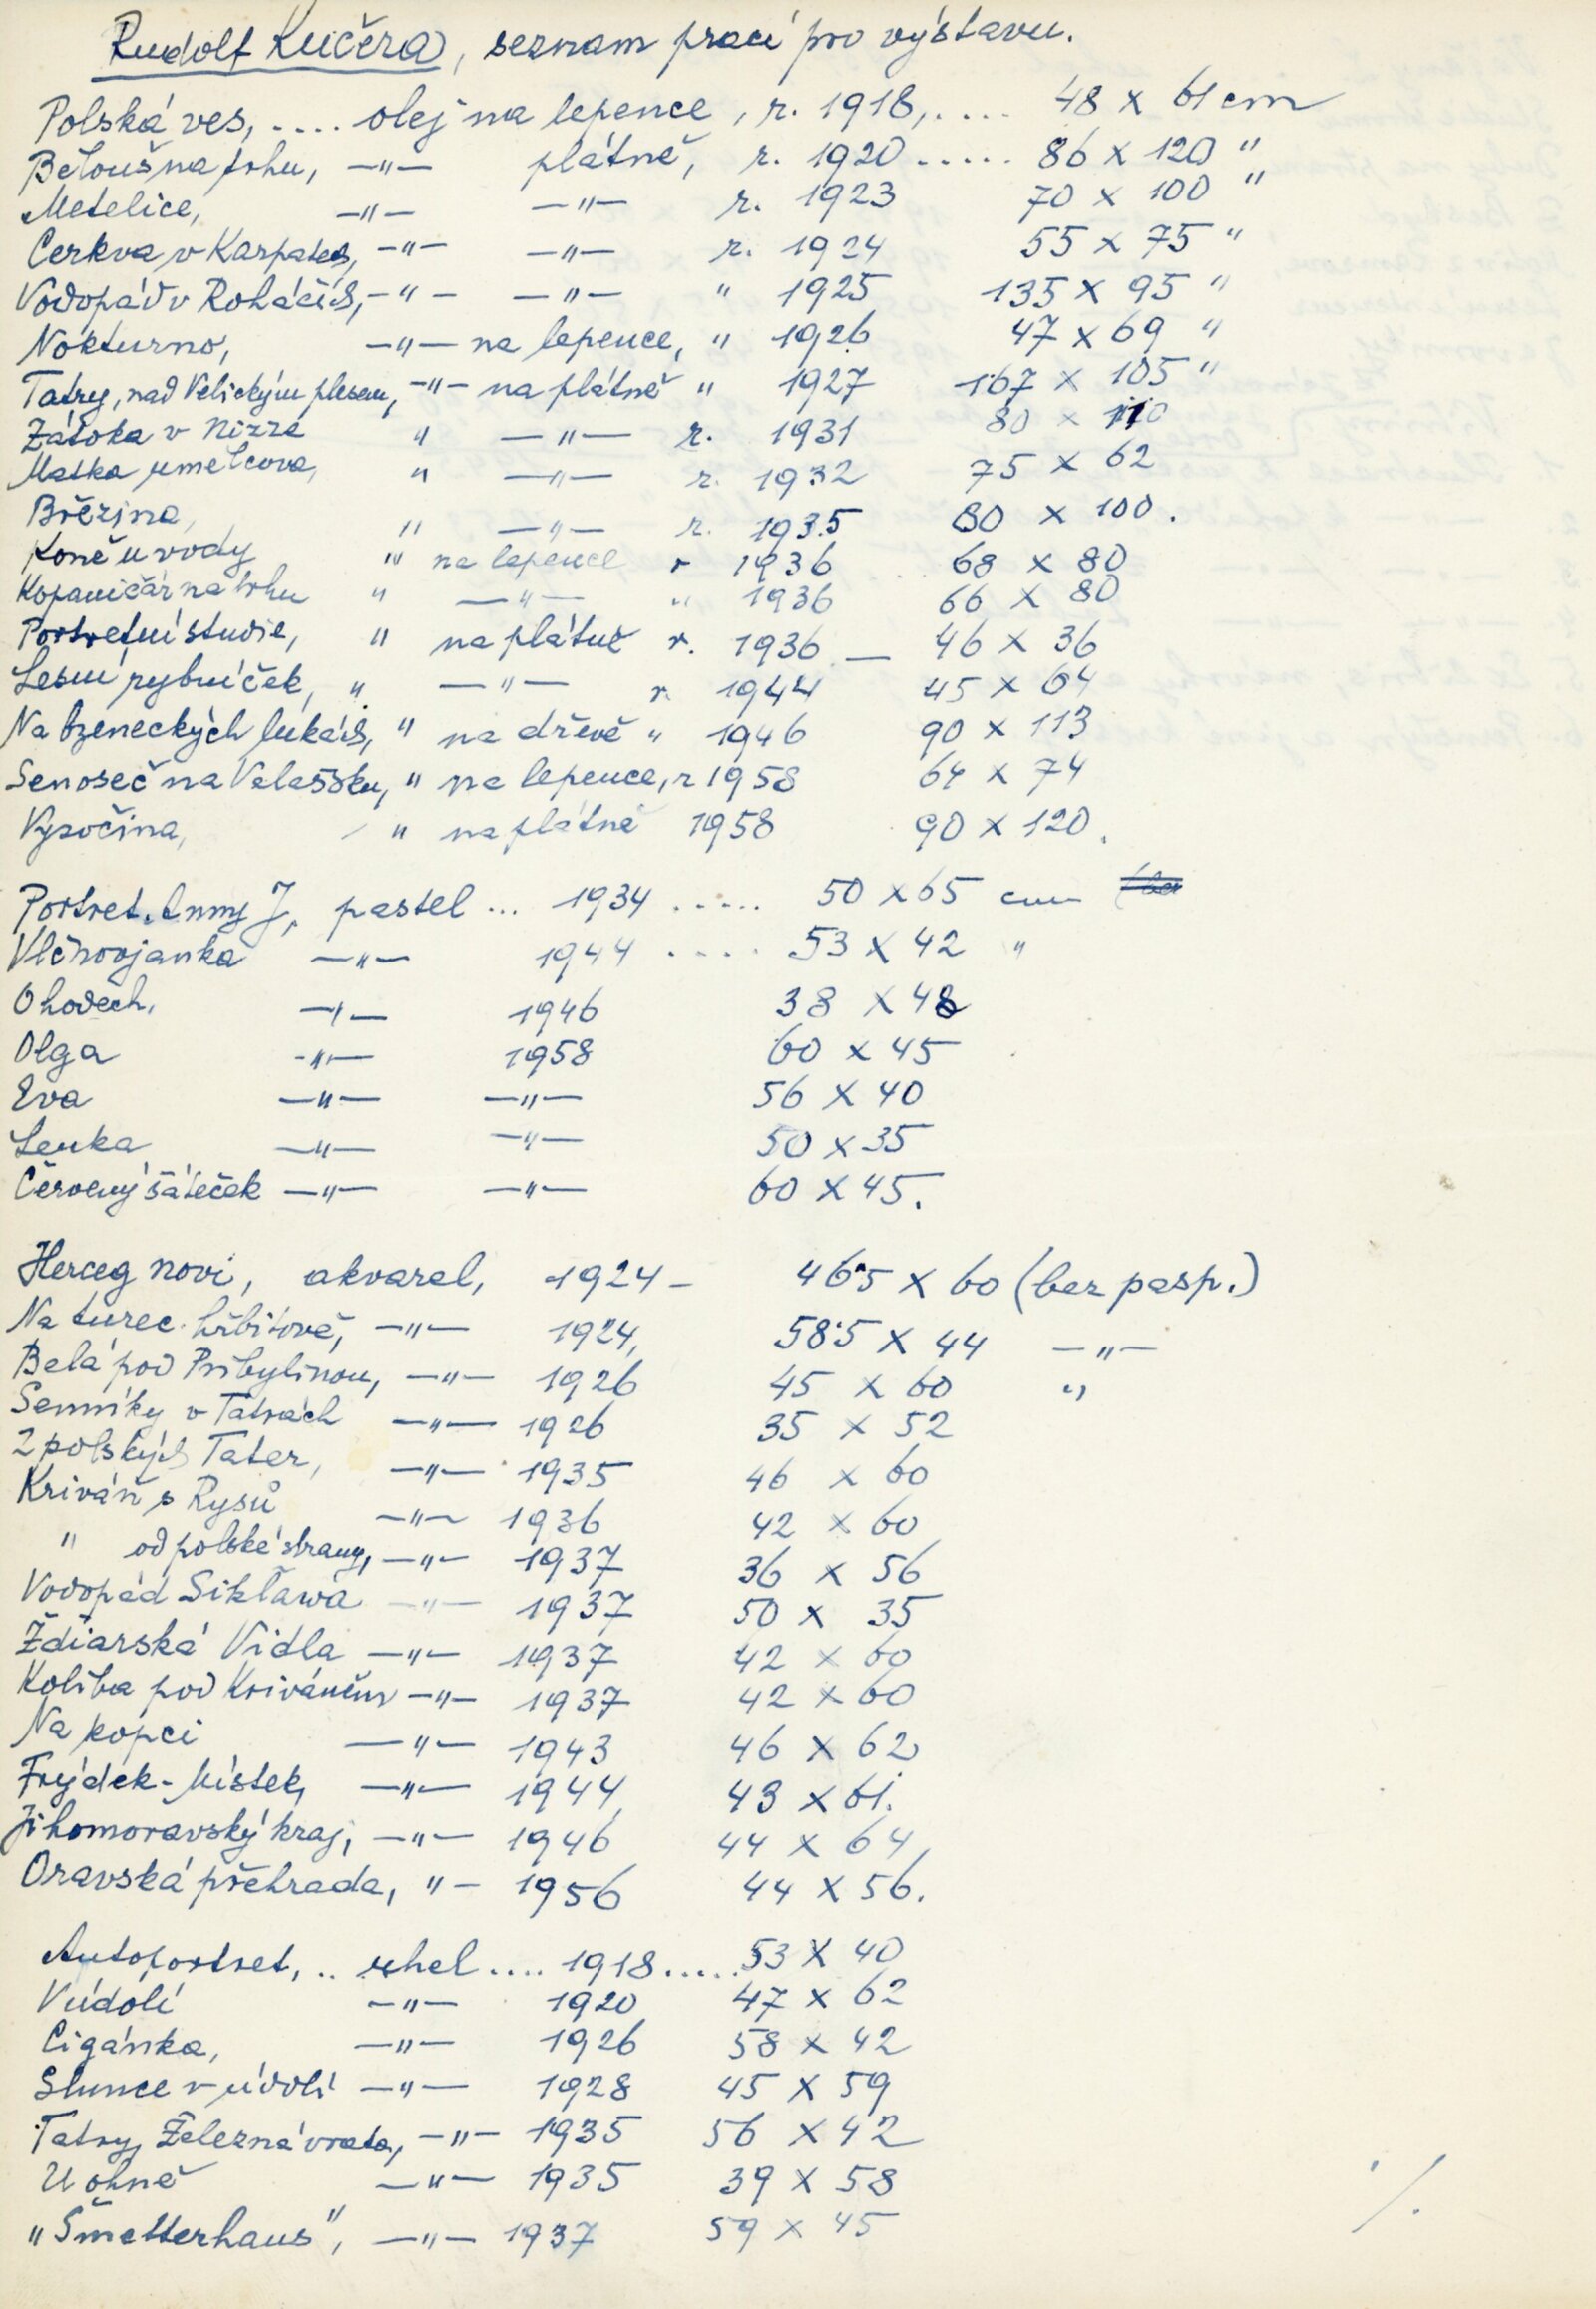 Rudolf Kučera, seznam prací pro výstavu.
Polská ves, .... olej na lepence, r. 1918, .... 48 x 61 cm
Běloušna trhu, —"— plátně, r. 1920 ..... 86 x 120 "
Metelice, —"— —"— r. 1923 70 x 100 "
Cerkva v Karpatech, —"— —"— r. 1924 55 x 75 "
Vodopád v Roháčích, —"— —"— " 1925 135 x 95 "
Nokturno, —"— na lepence, " 1926 47 x 69 "
Tatry, nad Velickým plesem, —"— na plátně " 1927 167 x 105 "
Zátoka v Nizze " —"— r. 1931 80 x 110
Matka umělcova, " —"— r. 1932 75 x 62
Březina, " —"— r. 1935 80 x 100.
Koně u vody " na lepence r 1936 68 x 80
Kopaničář na trhu " —"— " 1936 66 x 80
Portretní studie, " na plátně r. 1936 — 46 x 36
Lesní rybníček, " —"— r. 1944 45 x 64
Na bzeneckých lukách, " na dřevě " 1946 90 x 113
Senoseč na Valašsku, " na lepence, r 1958 64 x 74
Vysočina, " na plátně 1958 90 x 120.
Portret. Anny J, pastel ... 1934 ..... 50 x 65 cm
Vlčnovjanka —"— 1944 .... 53 x 42 "
O hodech, —"— 1946 38 x 48
Olga —"— 1958 60 x 45
Eva —"— —"— 56 x 40
Lenka —"— —"— 50 x 35
Červený šáteček —"— —"— 60 x 45.
Herceg novi, akvarel, 1924 - 46˙5 x 60 (bez pasp.)
Na turec. hřbitově, —"— 1924, 58˙5 x 44 —"—
Belá pod Pribylinou, —"— 1926 45 x 60 "
Senníky v Tatrách —"— 1926 35 x 52
Z polských Tater, —"— 1935 46 x 60
Kriváň s Rysů —"— 1936 42 x 60
" od polské strany, —"— 1937 36 x 56
Vodopád Siklawa —"— 1937 50 x 35
Ždiarská Vidla —"— 1937 42 x 60
Koliba pod Kriváněm —"— 1937 42 x 60
Na kopci —"— 1943 46 x 62
Frýdek-Místek, —"— 1944, 43 x 61.
Jihomoravský kraj, —"— 1946 44 x 64
Oravská přehrada, "— 1956 44 x 56.
Autoportret, .. uhel .... 1918 ..... 53 x 40
V údolí —"— 1920 47 x 62
Cigánka, —"— 1926 58 x 42
Slunce v údolí —"— 1928 45 x 59
Tatry, Železná vrata, —"— 1935 56 x 42
U ohně —"— 1935 39 x 58
„Šmetterhaus", —"— 1937 59 x 45
./.